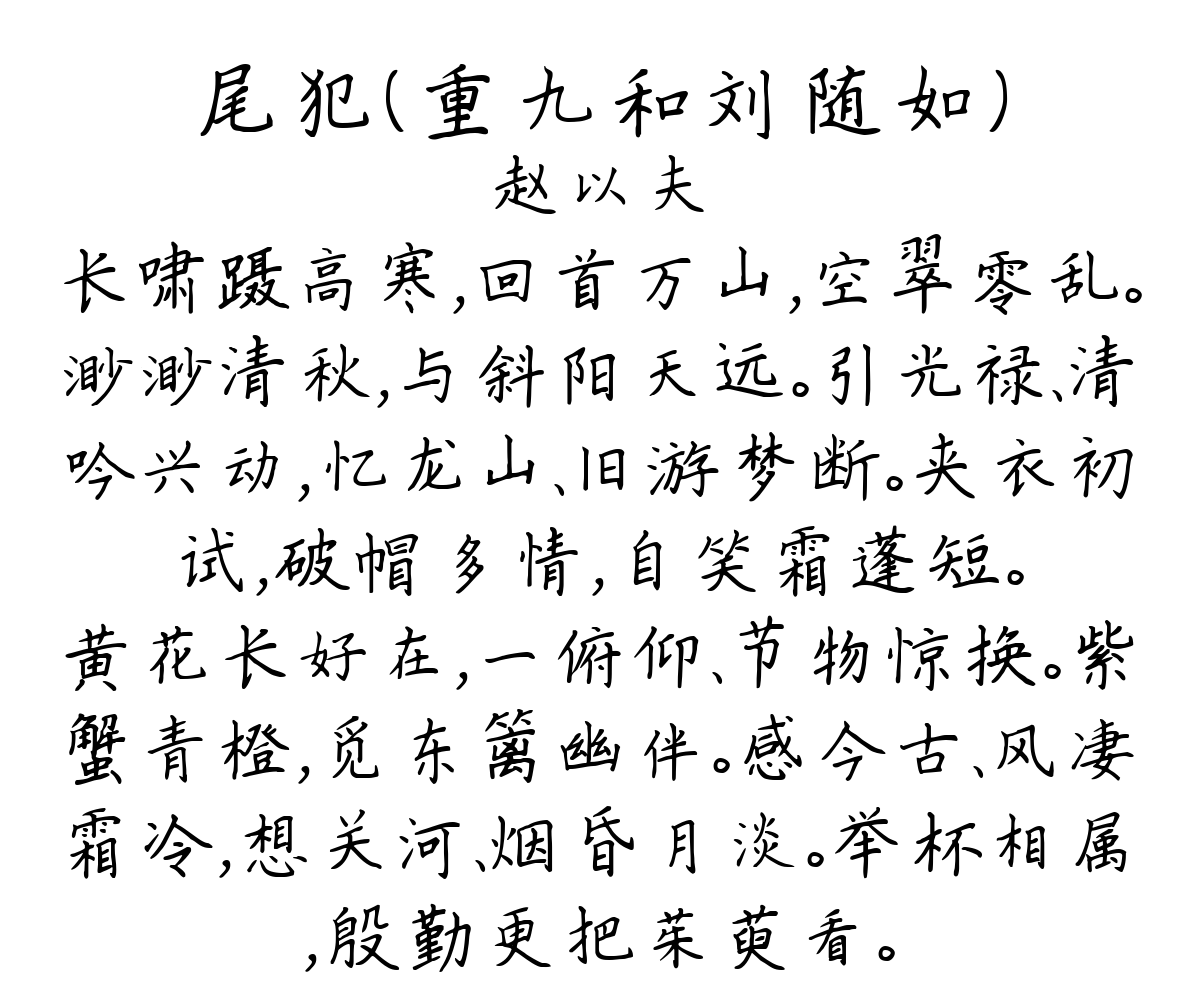 尾犯(重九和刘随如)
赵以夫
长啸蹑高寒,回首万山,空翠零乱。
渺渺清秋,与斜阳天远。引光禄、清
吟兴动,忆龙山、旧游梦断。夹衣初
试,破帽多情,自笑霜蓬短。
黄花长好在,一俯仰、节物惊换。紫
蟹青橙,觅东篱幽伴。感今古、风凄
霜冷,想关河、烟昏月淡。举杯相属
,殷勤更把茱萸看。